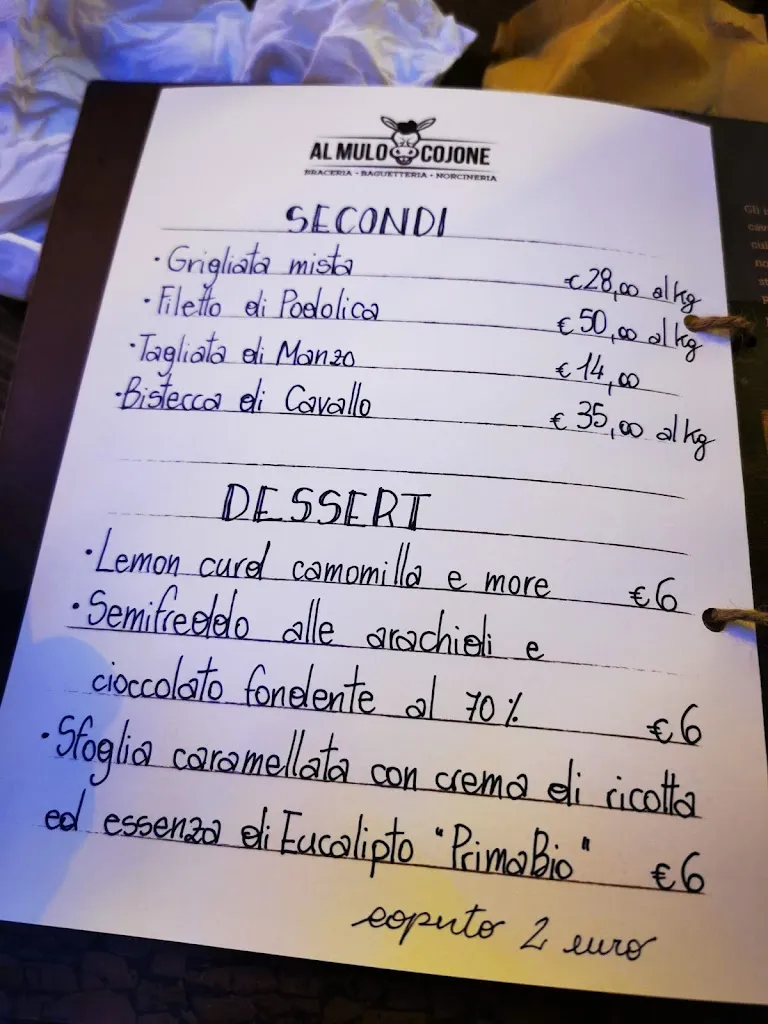 AL MULO COJONE
BRACERIA - BAGUETTERIA - NORCINERIA
SECONDI
· Grigliata mista € 28,00 al kg
· Filetto di Podolica € 50,00 al kg
· Tagliata di Manzo € 14,00
· Bistecca di Cavallo € 35,00 al kg
DESSERT
· Lemon curd camomilla e more € 6
· Semifreddo alle arachidi e
cioccolato fondente al 70% € 6
· Sfoglia caramellata con crema di ricotta
ed essenza di Eucalipto "PrimaBio" € 6
coputo 2 euro